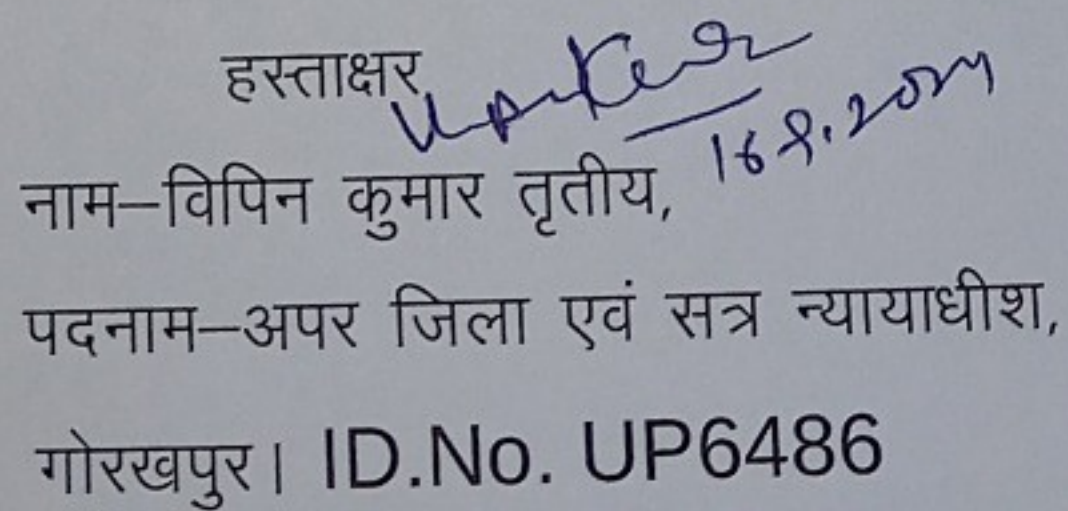 हस्ताक्षर
नाम–विपिन कुमार तृतीय,
पदनाम–अपर जिला एवं सत्र न्यायाधीश,
गोरखपुर। ID.No. UP6486